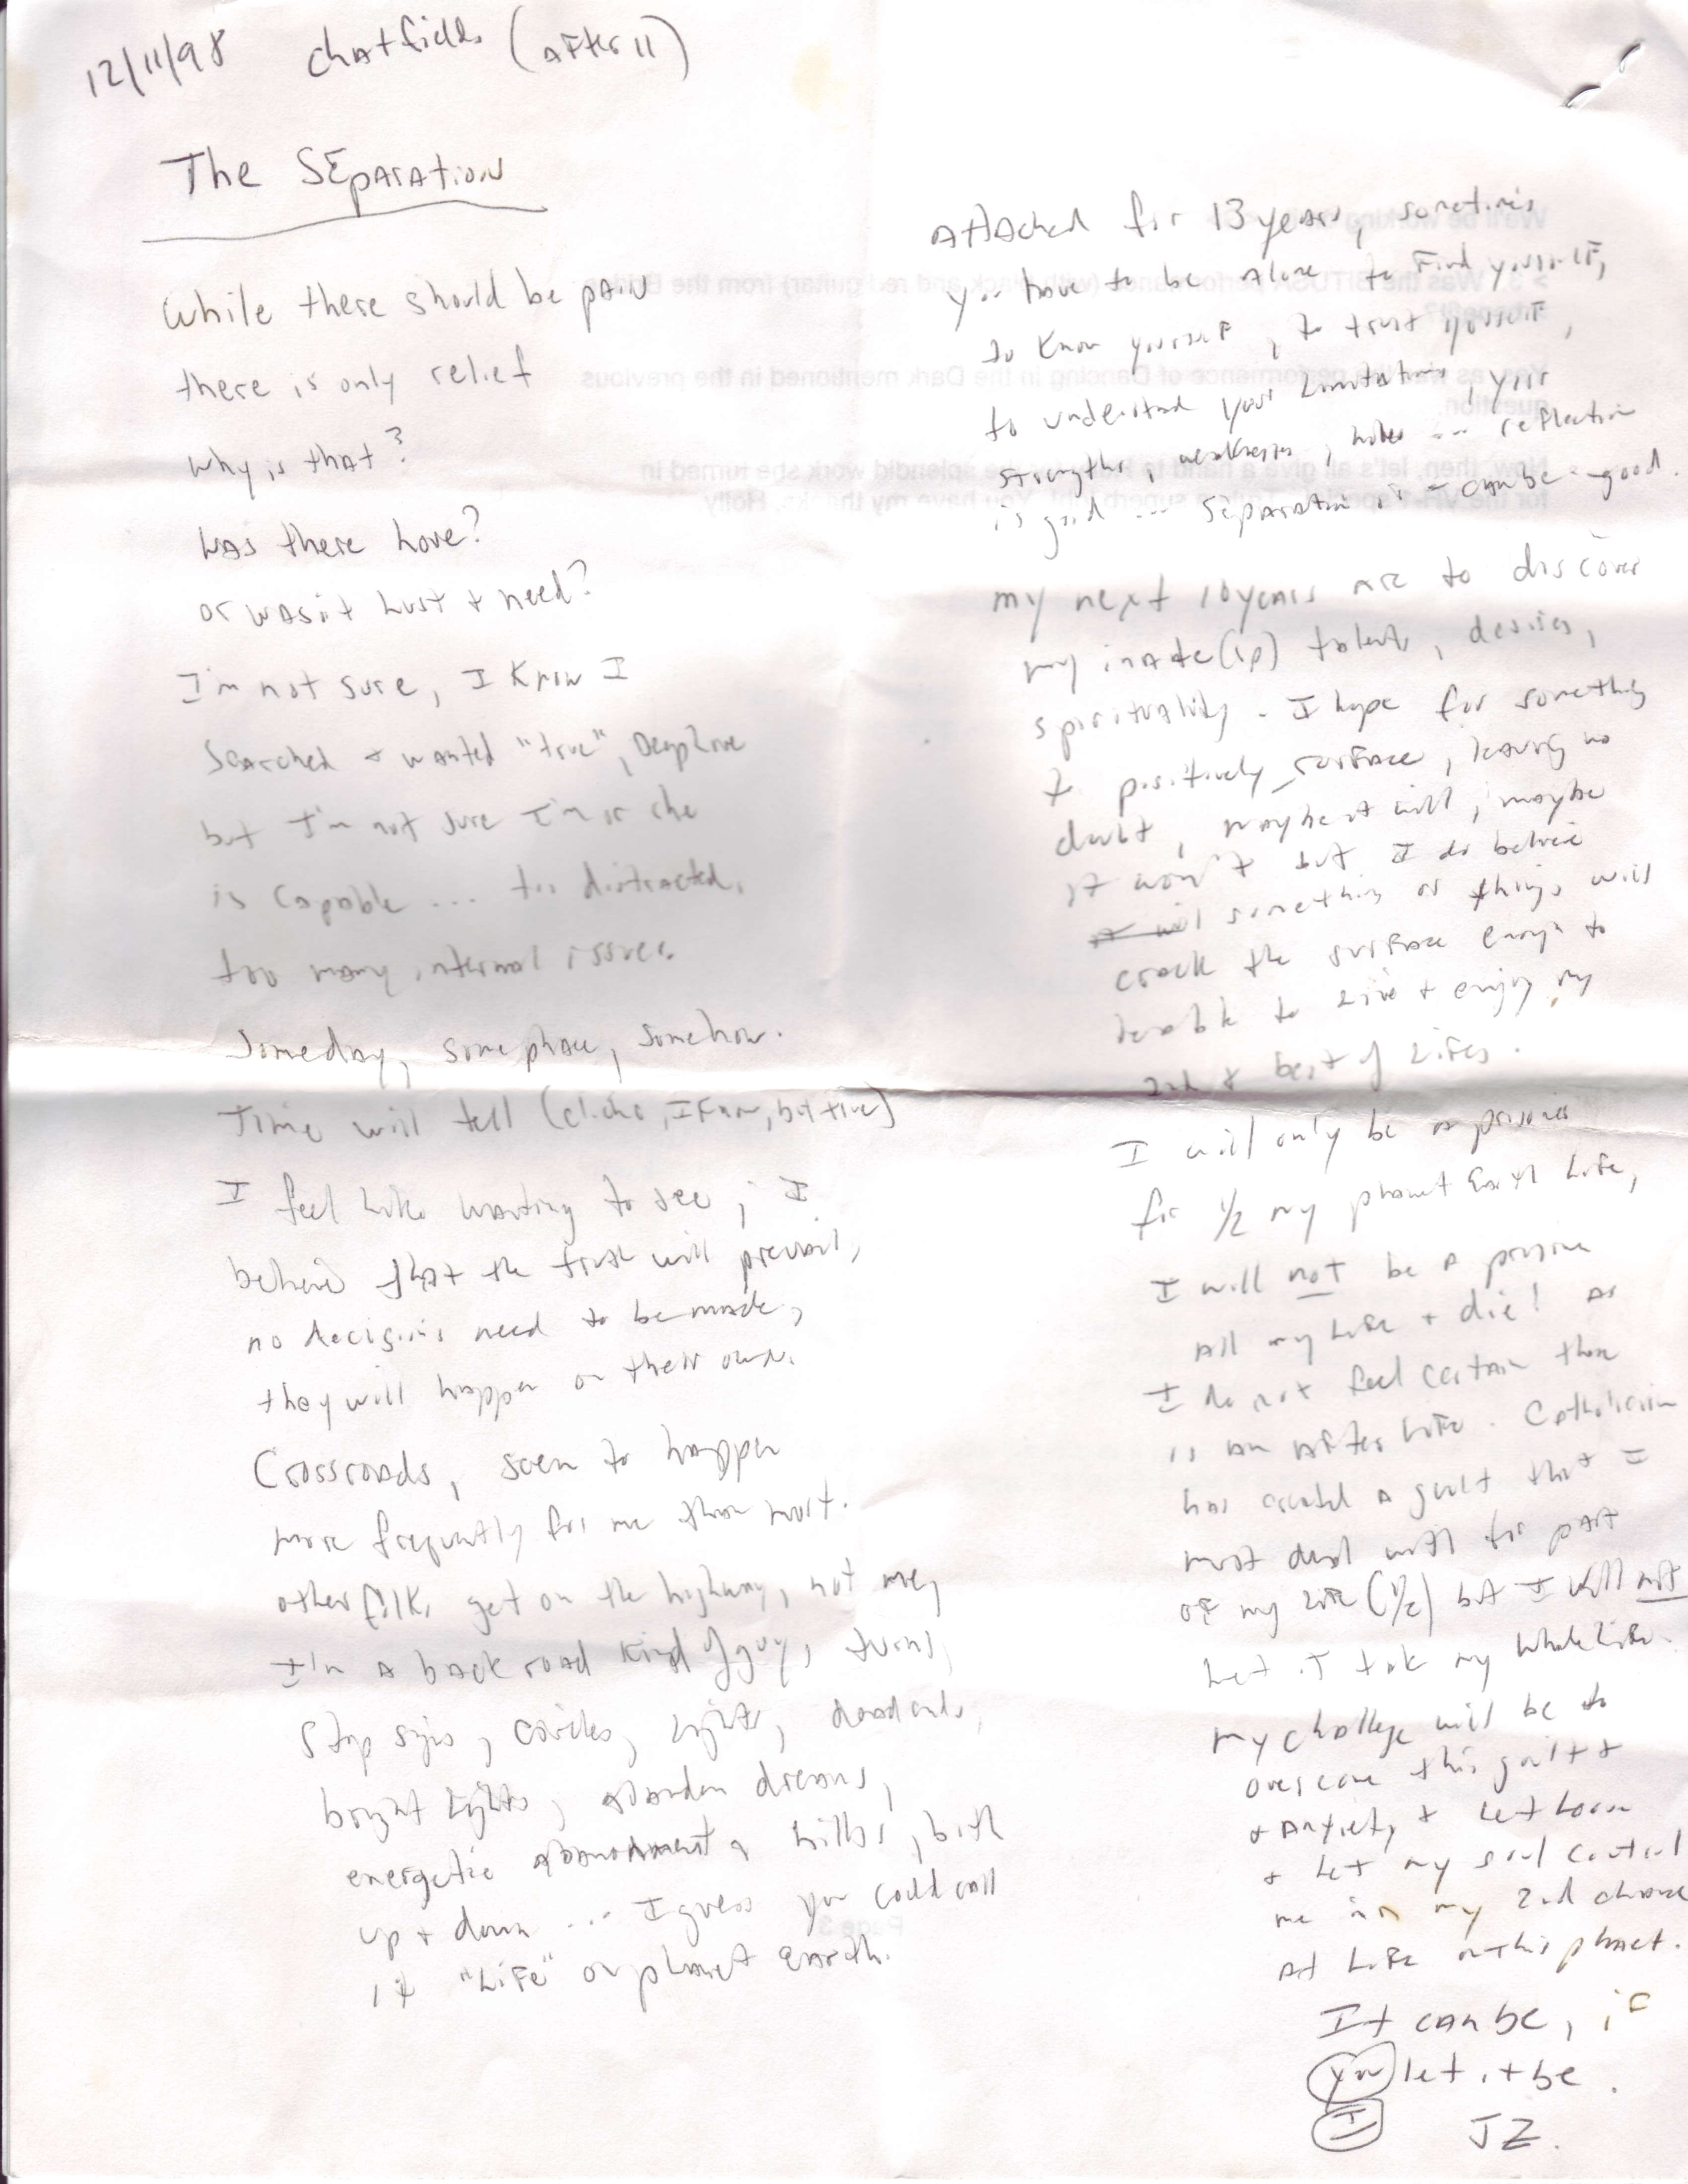 12/11/98 Chatfields (After 11)
The Separation
While there should be pain
there is only relief
Why is that?
Was there Love?
or was it Lust + need?
I'm not sure, I know I
Searched + wanted "true", Deep Love
but I'm not sure I'm or she
is capable ... too distracted,
too many internal issues.
Someday, some place, somehow.
Time will tell (cliche, I know, but true)
I feel like waiting to see, I
believe that the truth will prevail,
no decisions need to be made,
they will happen on their own.
Crossroads, seem to happen
more frequently for me than most.
other folks get on the highway, not me,
I'm a back road kind of guy, turns,
Stop signs, circles, lights, dead ends,
bright lights, abandon dreams,
energetic abandonment, hills, both
up + down ... I guess you could call
it "Life" on planet earth.
Attached for 13 years, sometimes
you have to be alone to find yourself,
to know yourself, to trust yourself,
to understand your limitations, your
strengths, weaknesses, ... reflection
is good ... Separation is - can be - good.
my next 10 years are to discover
my inate (sp) talents, desires,
spirituality. I hope for something
to positively surface, leaving no
doubt, maybe it will, maybe
it won't but I do believe
something or things will
crack the surface enough to
be able to live + enjoy my
2nd + best of lifes.
I will only be a prisoner
for 1/2 my planet Earth Life,
I will not be a prisoner
all my Life + die! As
I do not feel certain there
is an after life. Catholicism
has created a guilt that I
must deal with for part
of my life (1/2) but I will not
Let it take my whole Life.
my challenge will be to
overcome this guilt +
+ Anxiety + Let Loose
+ Let my soul control
me in my 2nd chance
at Life on this planet.
It can be, if
you let it be.
I JZ.